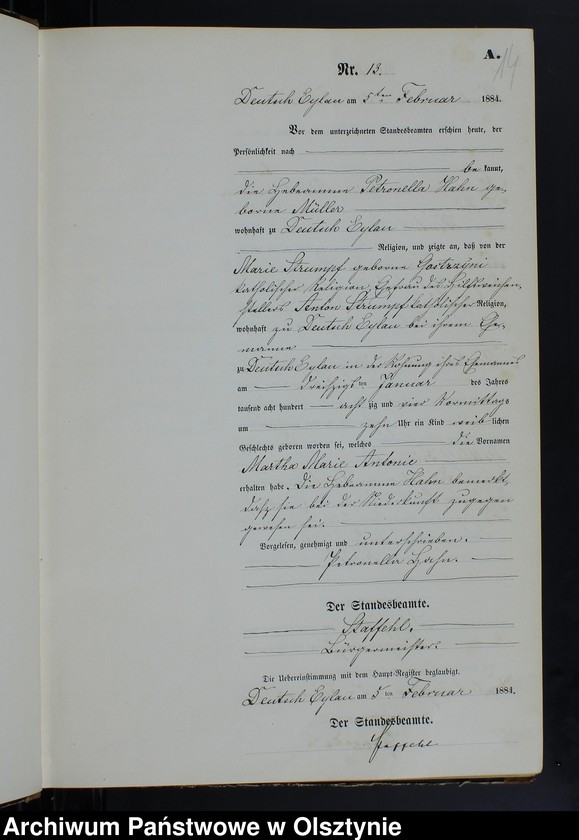 A.
14
Nr. 13.
Deutsch Eylau am 5ten Februar 1884.
Vor dem unterzeichneten Standesbeamten erschien heute, der
Persönlichkeit nach
be kannt,
die Hebeamme Petronella Hahn ge-
borne Müller
wohnhaft zu Deutsch Eylau
Religion, und zeigte an, daß von der
Marie Strumpf geborne Gostrzyni
katholischer Religion, Ehefrau des Hilfsweichen-
stellers Anton Strumpf katholischer Religion,
wohnhaft zu Deutsch Eylau bei ihrem Ehe-
manne
zu Deutsch Eylau in der Wohnung ihres Ehemannes
am dreißigsten Januar des Jahres
tausend acht hundert acht zig und vier Vormittags
um zehn Uhr ein Kind weib lichen
Geschlechts geboren worden sei, welches die Vornamen
Martha Marie Antonie
erhalten habe. Die Hebeamme Hahn bemerkt,
daß sie bei der Niederkunft zugegen
gewesen sei.
Vorgelesen, genehmigt und unterschrieben.
Petronella Hahn.
Der Standesbeamte.
Staffehl.
Bürgermeister.
Die Uebereinstimmung mit dem Haupt-Register beglaubigt.
Deutsch Eylau am 5ten Februar 1884.
Der Standesbeamte.
Staffehl
Archiwum Państwowe w Olsztynie